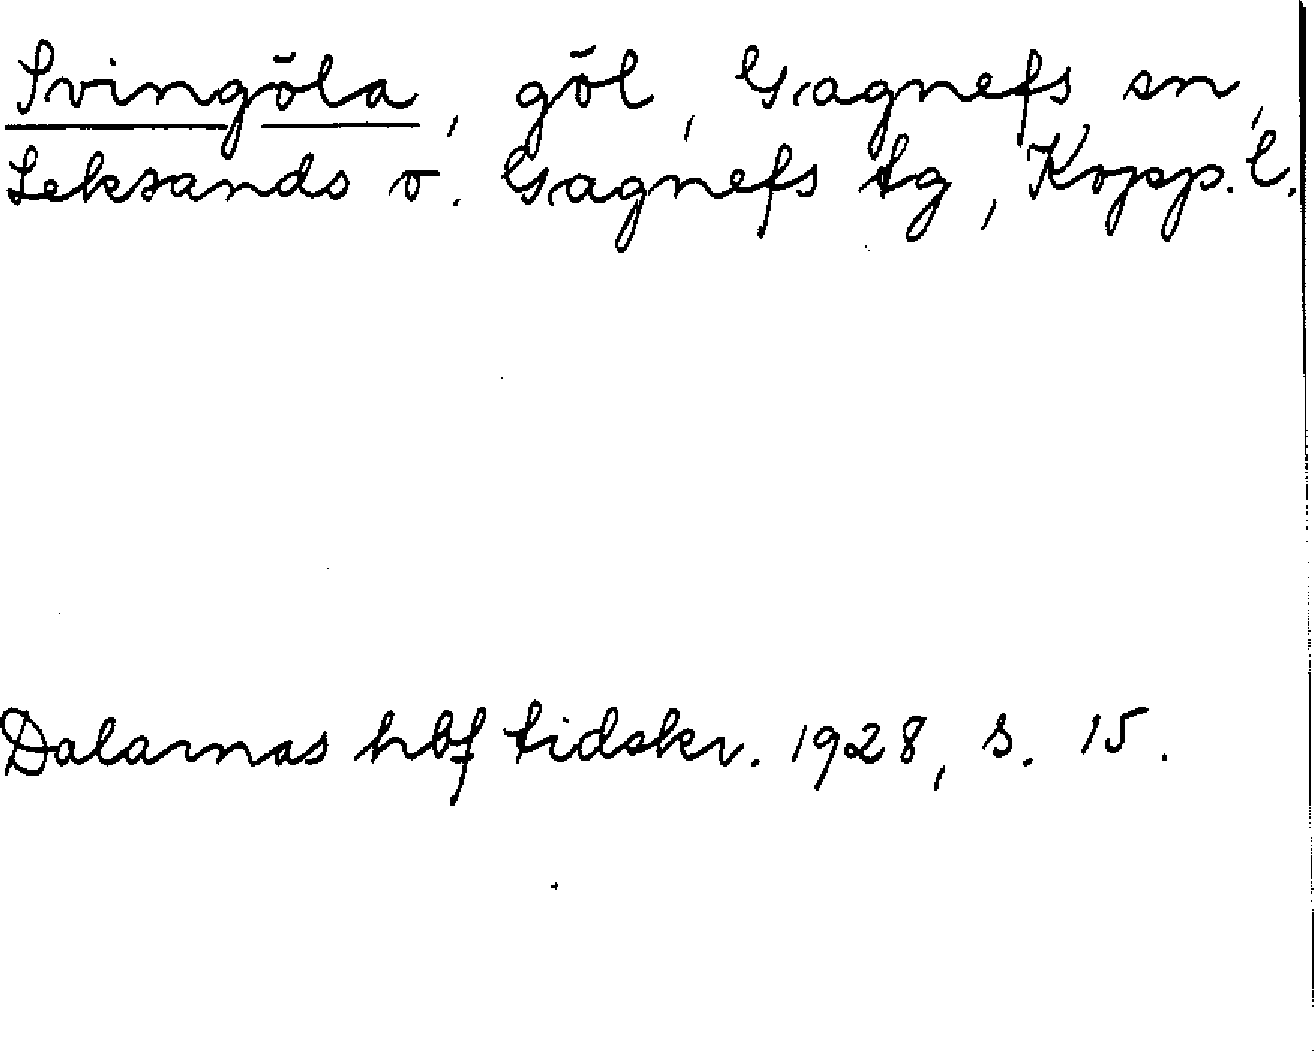 Svingöla, göl, Gagnefs sn,
Leksands o. Gagnefs tg, Kopp. l.
Dalarnas hbf tidskr. 1928, s. 15.